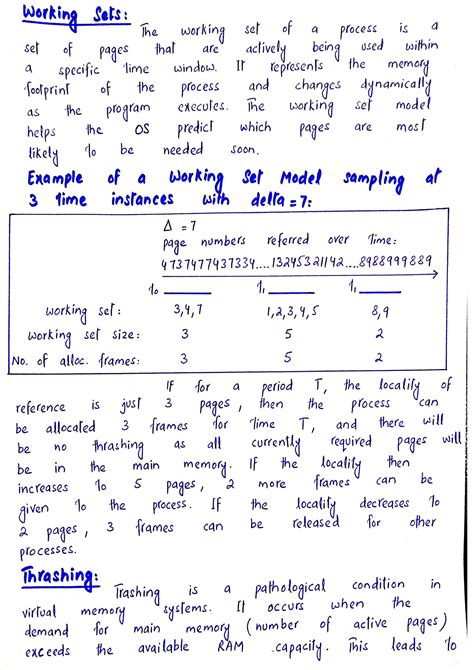 Working Sets:
The working set of a process is a
set of pages that are actively being used within
a specific time window. It represents the memory
footprint of the process and changes dynamically
as the program executes. The working set model
helps the OS predict which pages are most
likely to be needed soon.
Example of a Working Set Model sampling at
3 time instances with delta=7:
Δ = 7
page numbers referred over time:
4737477437334....1324532114 2....8988999889
t₀ t₁ t₁
working set: 3,4,7 1,2,3,4,5 8,9
working set size: 3 5 2
No. of alloc. frames: 3 5 2
If for a period T, the locality of
reference is just 3 pages, then the process can
be allocated 3 frames for time T, and there will
be no thrashing as all currently required pages will
be in the main memory. If the locality then
increases to 5 pages, 2 more frames can be
given to the process. If the locality decreases to
2 pages, 3 frames can be released for other
processes.
Thrashing:
Trashing is a pathological condition in
virtual memory systems. It occurs when the
demand for main memory (number of active pages)
exceeds the available RAM capacity. This leads to